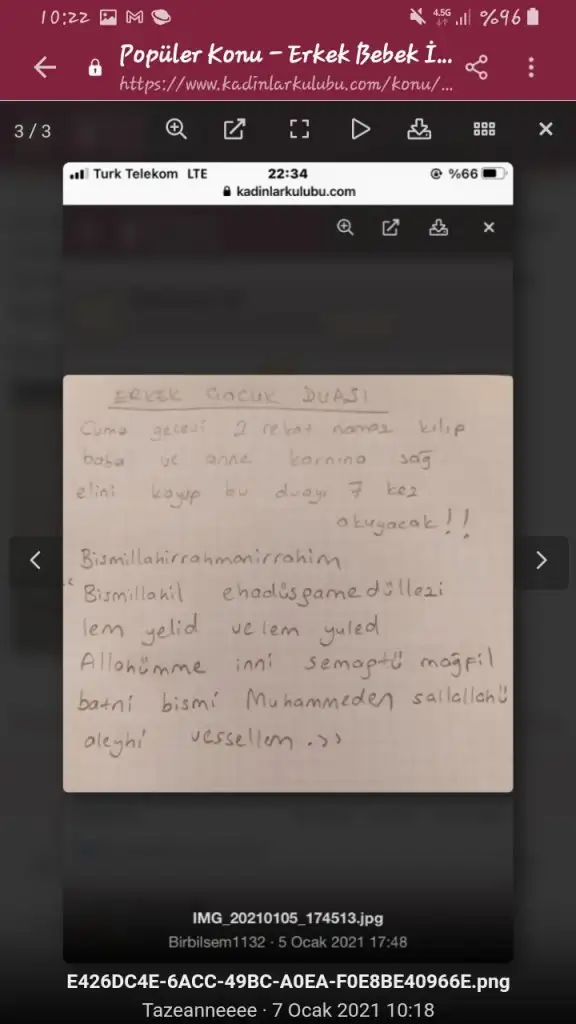 10:22 4.5G %96
Popüler Konu – Erkek Bebek İ...
https://www.kadinlarkulubu.com/konu/...
3 / 3
Turk Telekom LTE 22:34 %66
kadinlarkulubu.com
ERKEK ÇOCUK DUASI
Cuma gecesi 2 rekat namaz kılıp
baba ve anne karnına sağ
elini koyup bu duayı 7 kez
okuyacak!!
Bismillahirrahmanirrahim
"Bismillahil ehadüsgamedüllezi
lem yelid velem yuled
Allahümme inni semaptü mağfil
batni bismi Muhammeden sallallahü
aleyhi vessellem.>>
IMG_20210105_174513.jpg
Birbilsem1132 · 5 Ocak 2021 17:48
E426DC4E-6ACC-49BC-A0EA-F0E8BE40966E.png
Tazeanneeee · 7 Ocak 2021 10:18